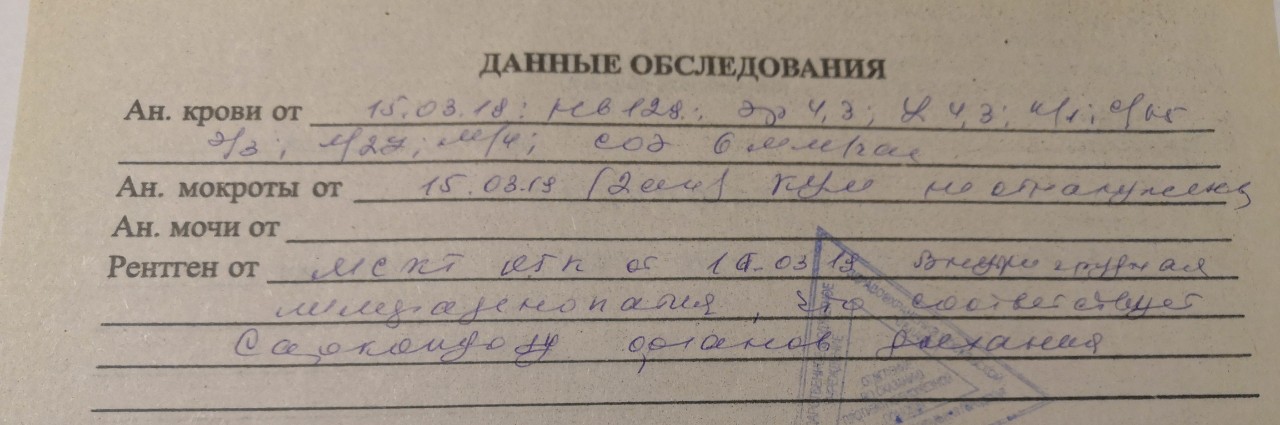 ДАННЫЕ ОБСЛЕДОВАНИЯ
Ан. крови от 15.03.19: Нв 128; Эр 4,3; L 4,3; п/1; с/65
э/3; л/27; м/4; СОЭ 6 мм/час
Ан. мокроты от 15.03.19 (2ан) КУМ не обнаружены
Ан. мочи от
Рентген от МСКТ ОГК от 03.19 Внутригрудная
лимфаденопатия, что соответствует
Саркоидозу органов дыхания